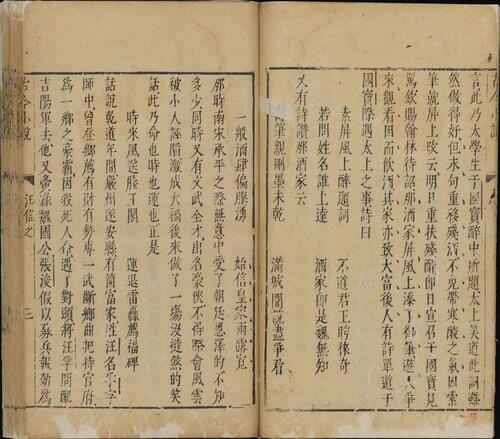 言此乃太學生于國寶醉中所題太上笑道此調雖
然做得好但末句重移殘酒不免帶寒酸之氣因索
筆就屏上改云明日重扶殘醉即日宣召于國寶見
駕欽賜翰林待詔那酒家屏風上添了御筆遊人爭
來觀看因而飲酒其家亦致大富後人有詩單道于
國寶際遇太上之事詩曰
素屏風上醉題詞 不道君王盼徠奇
若問姓名誰上達 酒家即是魏無知
又有詩讚那酒家云
筆親刪墨未乾 滿城聞說盡爭看
一般酒肆偏騰湧 始信皇家雨露寬
那時南宋承平之際無意中受了朝廷恩澤的不知
多少同時又有文武全才出名豪俠不得際會風雲
被小人誣陷激成大禍後來做了一塲沒撻煞的笑
話此乃命也時也運也正是
時來風送滕王閣 運退雷轟薦福碑
話說乾道年間嚴州遂安縣有箇富家姓汪名孚字
師中曾登鄉薦有財有勢專一武斷鄉曲把持官府
為一鄉之豪霸因殺死人命遇了對頭將汪孚問配
吉陽軍去他又夤緣魏國公張浚假以募兵報効為
古今小說 汪信之 三